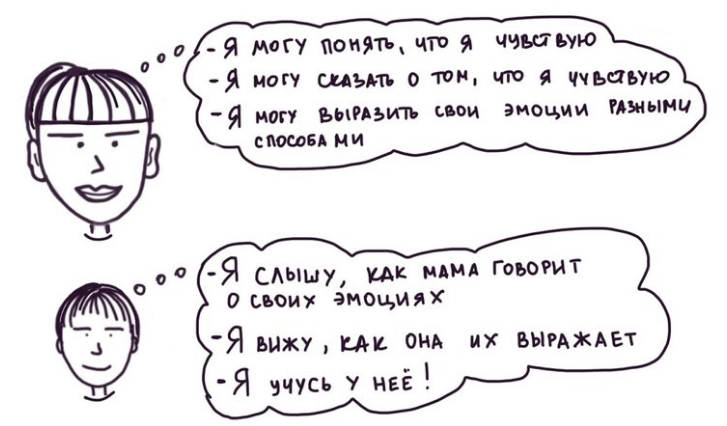 - Я могу понять, что я чувствую
- Я могу сказать о том, что я чувствую
- Я могу выразить свои эмоции разными
способами
- Я слышу, как мама говорит
о своих эмоциях
- Я вижу, как она их выражает
- Я учусь у неё!